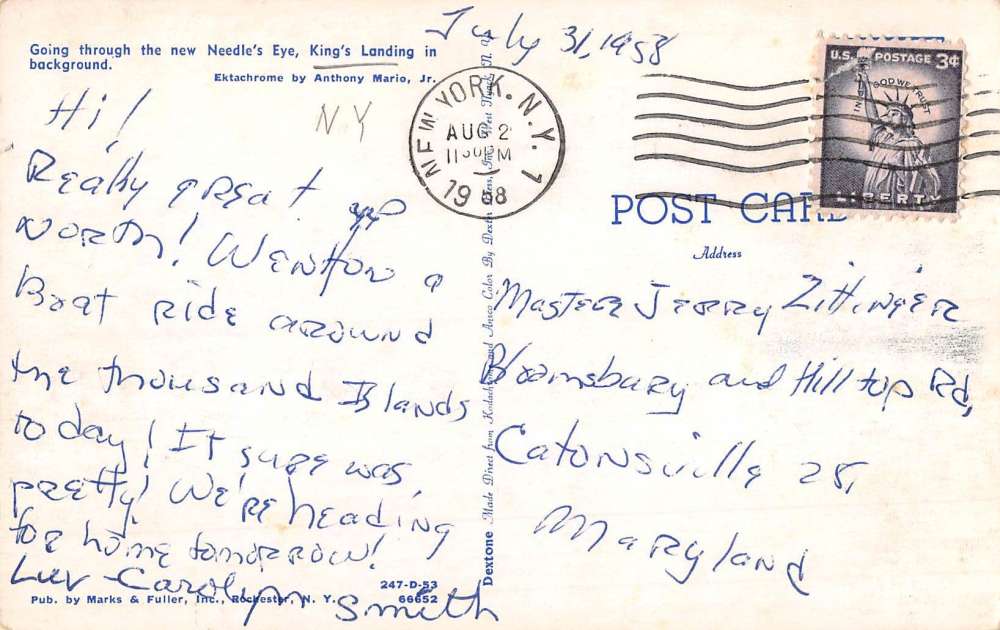 July 31, 1958
Going through the new Needle's Eye, King's Landing in
background.
Ektachrome by Anthony Mario, Jr.
NY
Hi!
Really great
up
North! Went for a
Boat ride around
the thousand Islands
today! It sure was
pretty! We're heading
for home tomorrow!
Luv Carolyn Smith
247-D-53
66652
Pub. by Marks & Fuller, Inc., Rochester, N. Y.
Dextone Made Direct from Kodachrome and Ansco Color By Dexter Press, Inc., West Nyack, N. Y.
NEW YORK, N.Y. 1
AUG 2
1958
U.S. POSTAGE 3¢
IN GOD WE TRUST
LIBERTY
POST CARD
Address
Master Jerry Zittinger
Bloomsbury and Hilltop Rd,
Catonsville 28,
Maryland